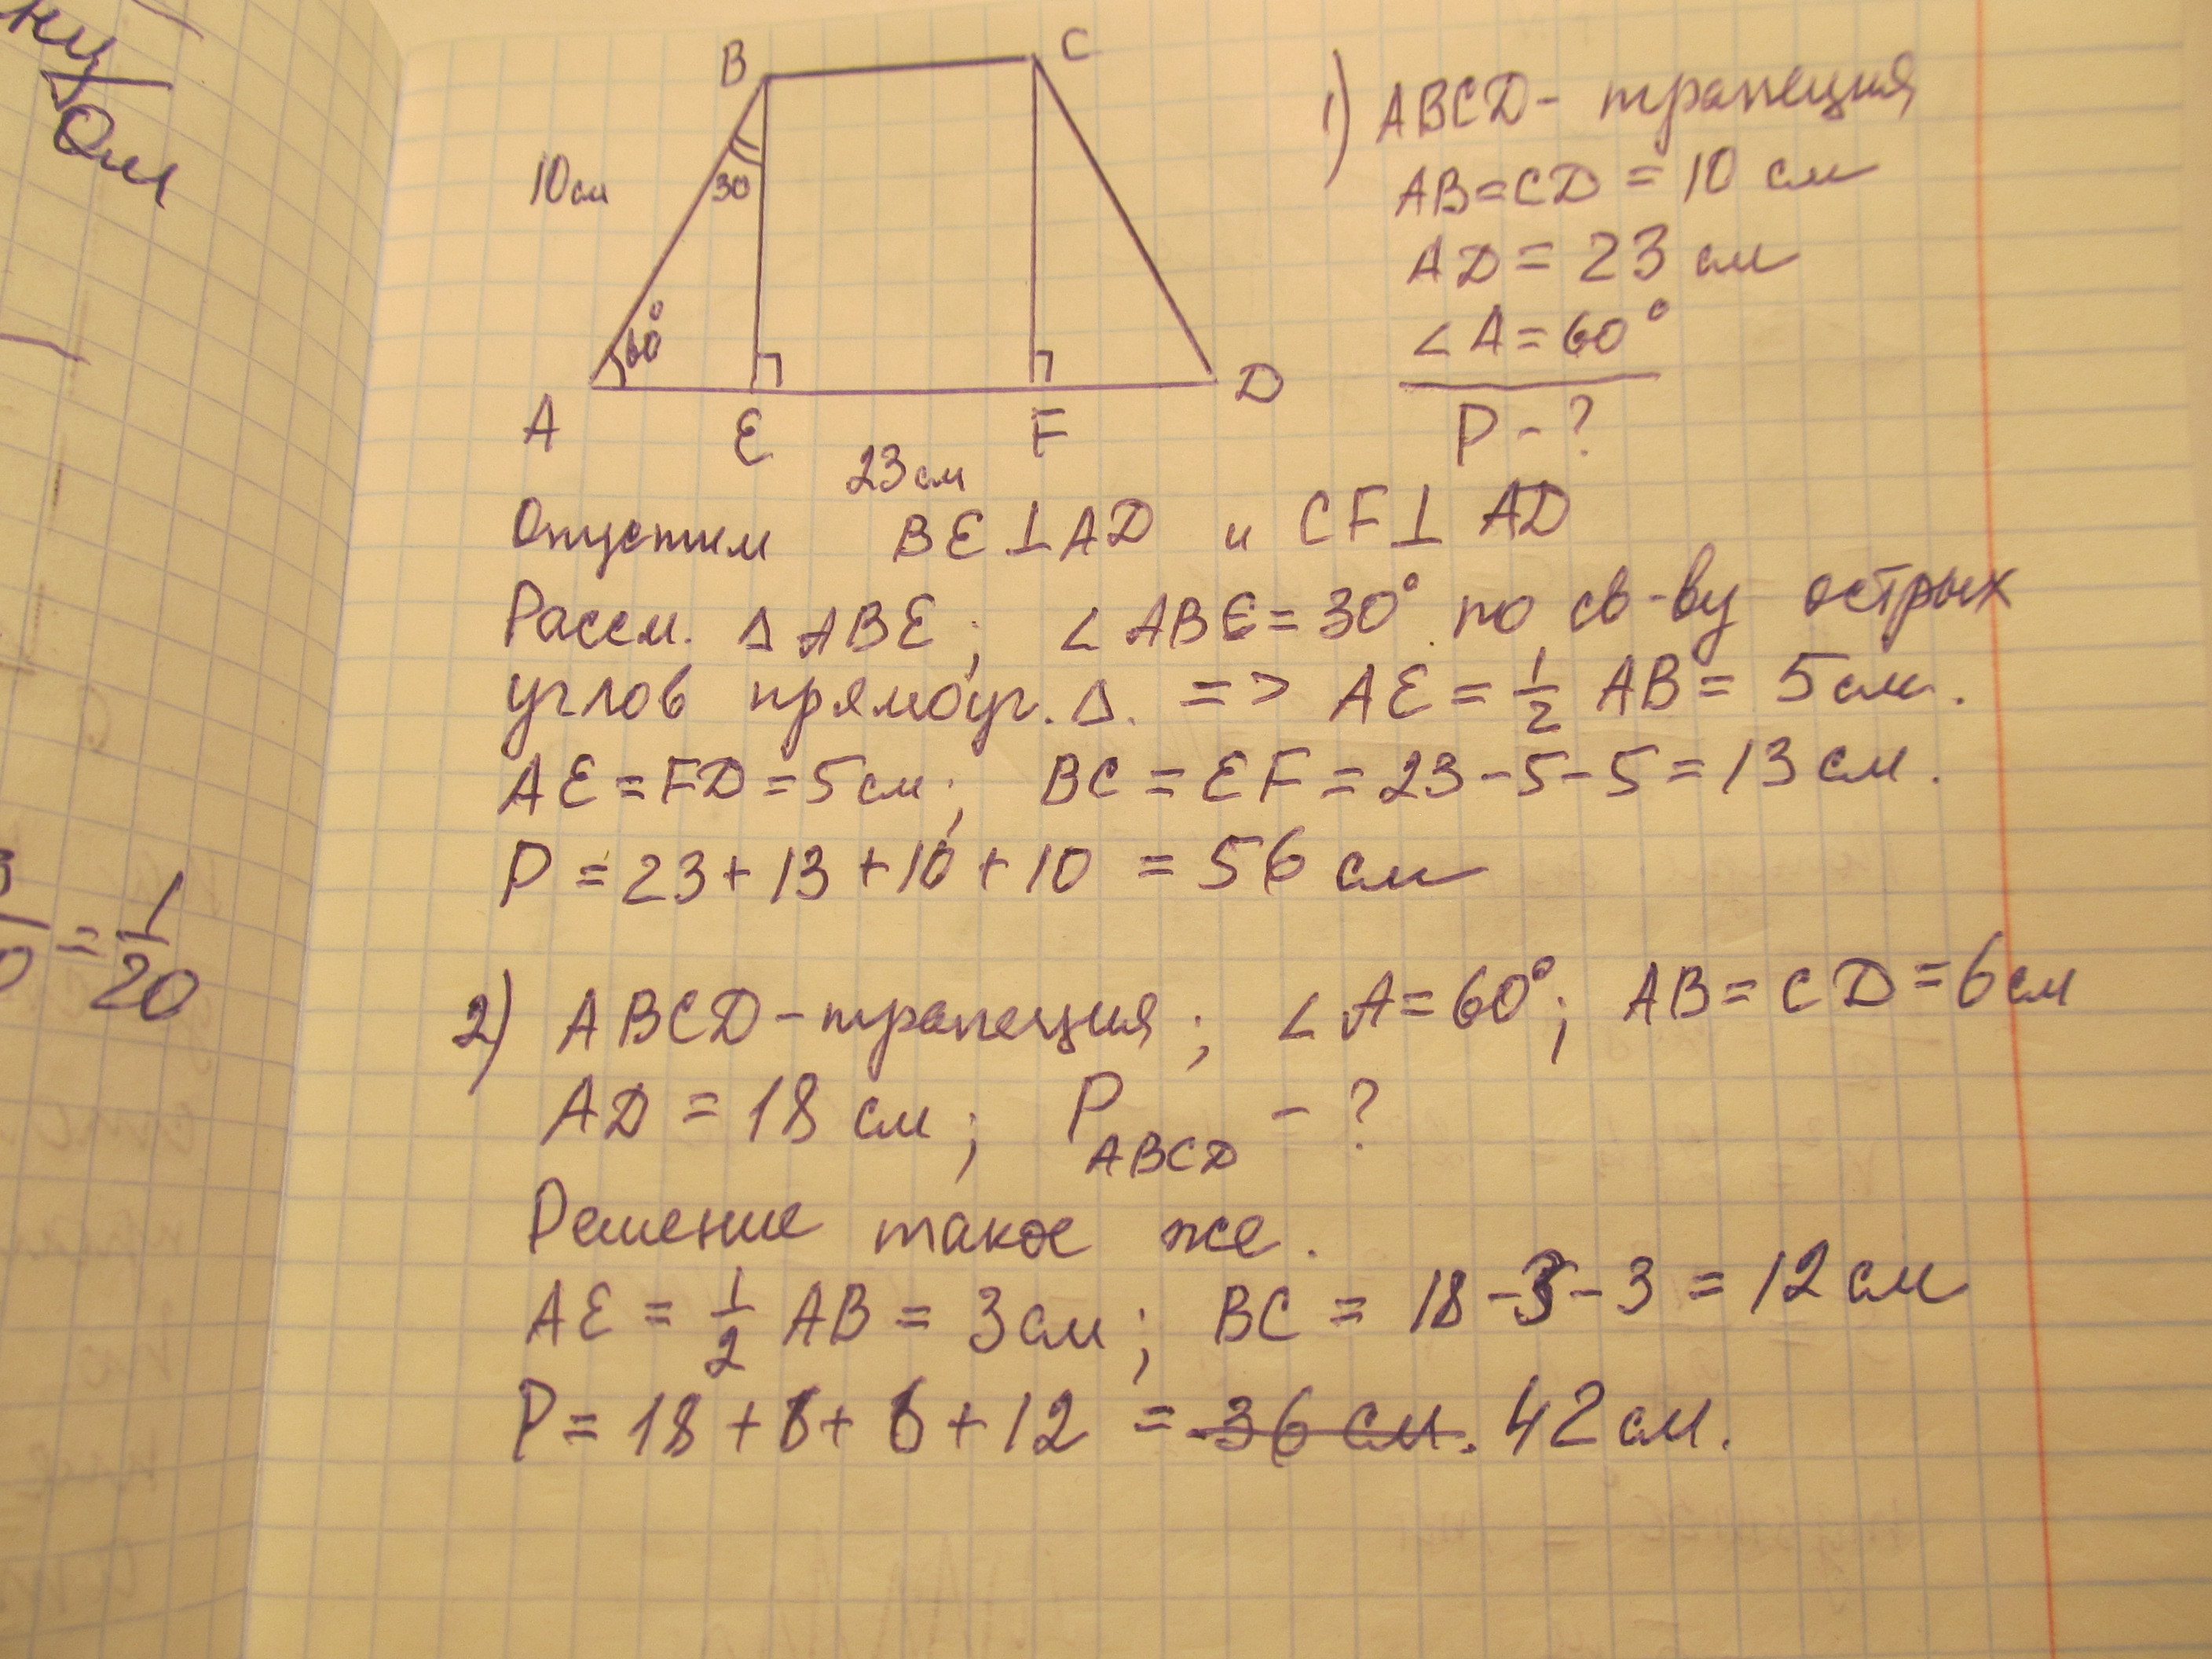 ни
Ом
= 1/20
B
C
10см
30
60°
A
E
F
D
23см
1) ABCD - трапеция
AB = CD = 10 см
AD = 23 см
∠A = 60°
P - ?
Опустим BE ⊥ AD и CF ⊥ AD
Рассм. △ ABE; ∠ABE = 30° по св-ву острых
углов прямоуг. △. => AE = 1/2 AB = 5 см.
AE = FD = 5 см; BC = EF = 23 - 5 - 5 = 13 см.
P = 23 + 13 + 10 + 10 = 56 см
2) ABCD - трапеция; ∠A = 60°; AB = CD = 6 см
AD = 18 см; P ABCD - ?
Решение такое же.
AE = 1/2 AB = 3 см; BC = 18 - 3 - 3 = 12 см
P = 18 + 6 + 6 + 12 = 36 см. 42 см.